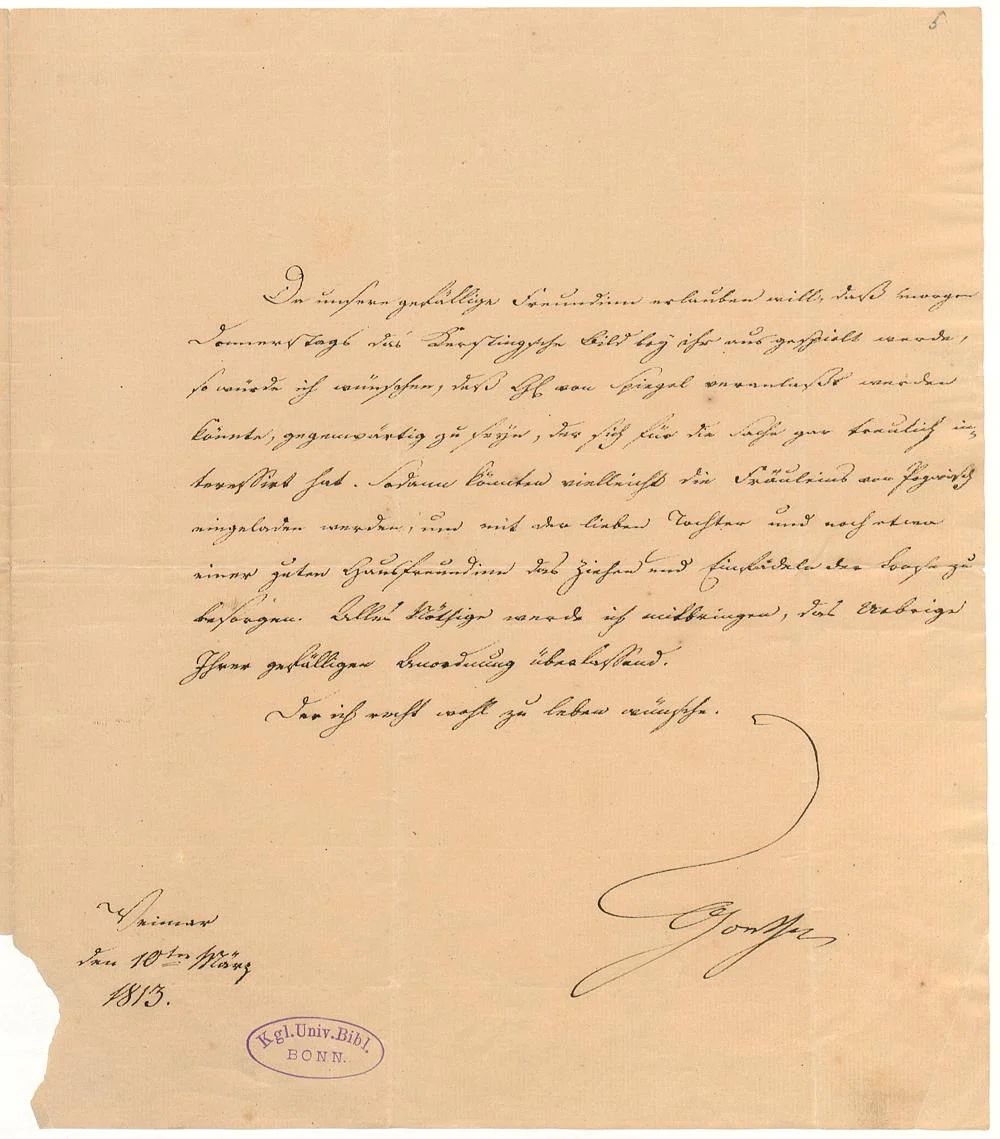 5
Da unsere gefällige Freundinn erlauben will, daß morgen
Donnerstags das Kerstingsche Bild bey ihr ausgespielt werde,
so würde ich wünschen, daß von Spiegel veranlaßt werden
könnte, gegenwärtig zu seyn, der sich für die Sache gar treulich in-
teressirt hat. Sodann könnten vielleicht die Fräuleins von Pogwisch
eingeladen werden, um mit der lieben Tochter und noch etwa
einer guten Hausfreundinn das Ziehen und Einfädeln der Loose zu
besorgen. Alles Nöthige werde ich mitbringen, das Uebrige
Ihrer gefälligen Anordnung überlassend.
Der ich recht wohl zu leben wünsche.
Goethe
Weimar
den 10ten März
1813.
Kgl. Univ. Bibl.
BONN.